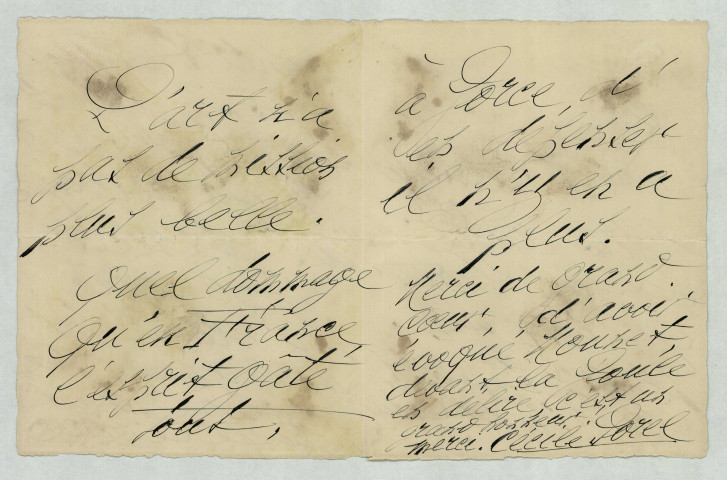 L'art n'a
pas de mission
plus belle.
Quel dommage
qu'en France,
l'esprit gâte
tout,
à force, d'
en dépenser
il n'y en a
plus.
Merci de grand
cœur, d'avoir
évoqué Mounet,
devant la foule
en délire c'est un
grand honneur
merci. Cécile Sorel